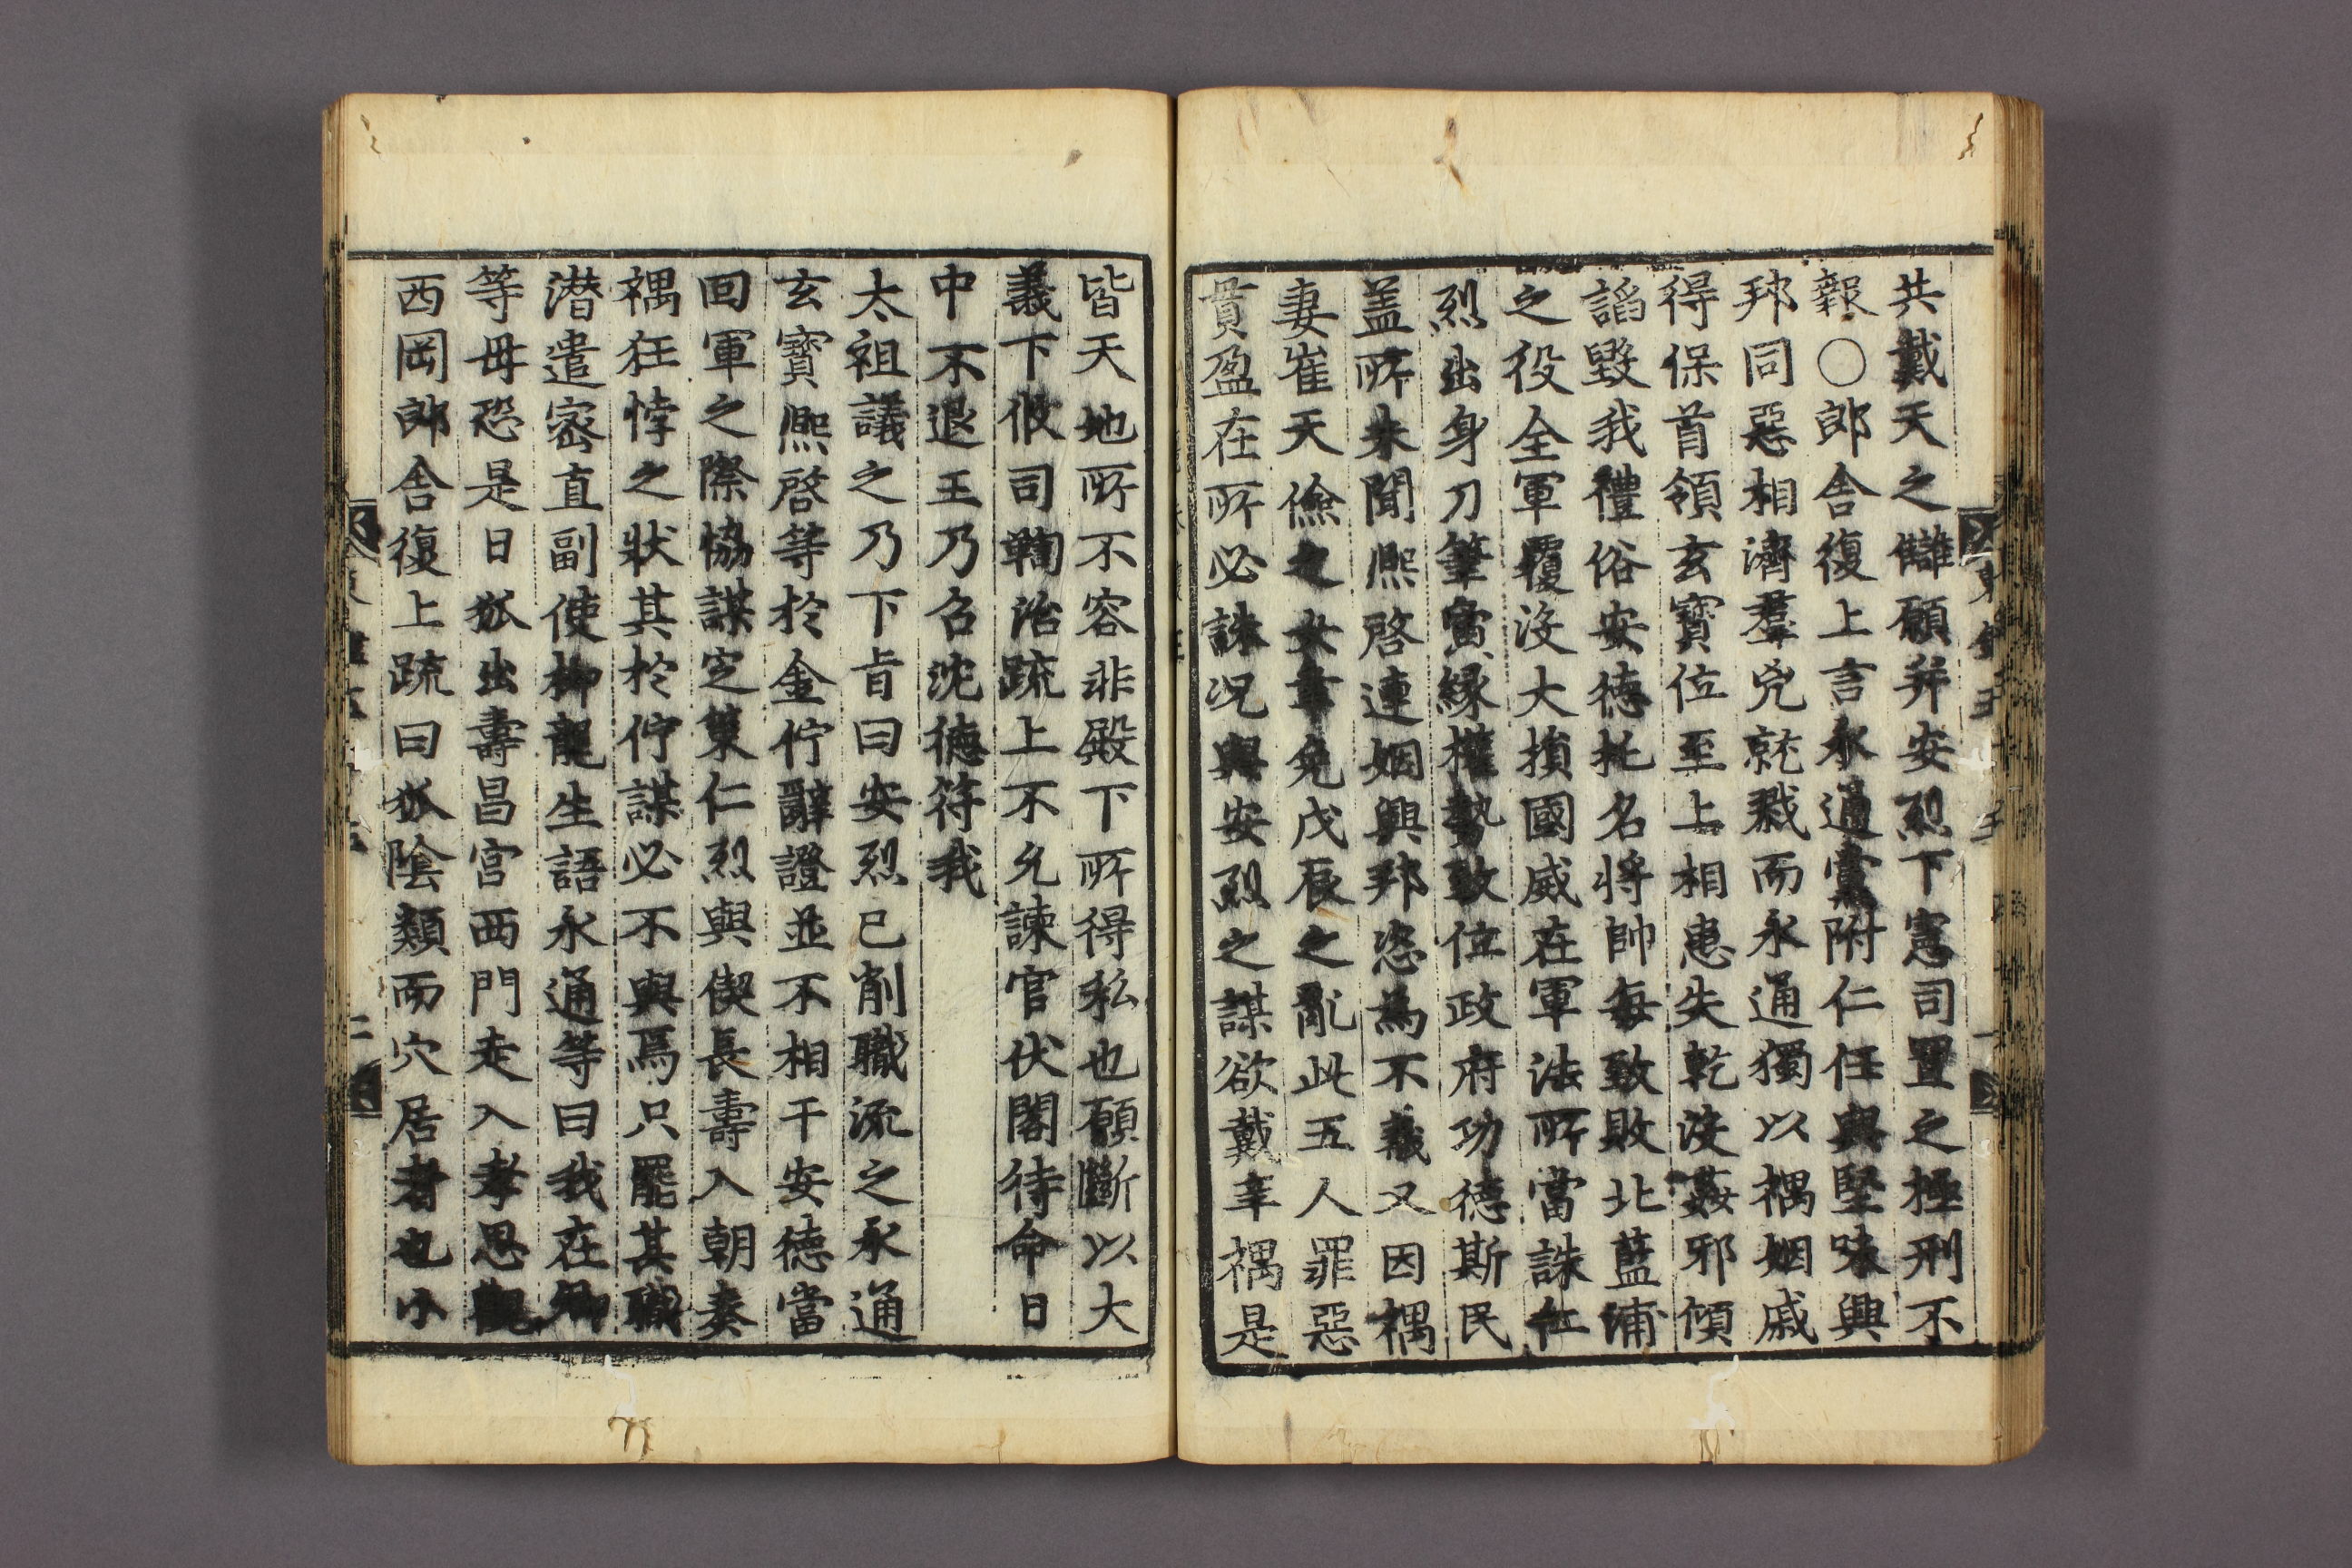 共戴天之讎願幷安烈下憲司置之極刑不
報○郎舍復上言永通黨附仁任與堅味興
邦同惡相濟羣兇就戮而永通獨以禑姻戚
得保首領玄寶位至上相患失乾沒姦邪傾
謟毀我禮俗安德托名將帥每致敗北藍浦
之役全軍覆沒大損國威在軍法所當誅仁
烈出身刀筆寅緣權勢致位政府功德斯民
盖所未聞熙啓連姻興邦恣爲不義又因禑
妻崔天儉之女幸免戊辰之亂此五人罪惡
貫盈在所必誅况與安烈之謀欲戴辛禑是
皆天地所不容非殿下所得私也願斷以大
義下攸司鞫治疏上不允諫官伏閤待命日
中不退王乃召沈德符我
太祖議之乃下旨曰安烈已削職流之永通
玄寶熙啓等於金佇辭證並不相干安德當
回軍之際恊謀定策仁烈與偰長壽入朝奏
禑狂悖之狀其於佇謀必不與焉只罷其職
潛遣密直副使柳龍生語永通等曰我在卿
等毋恐是日狐出壽昌宮西門走入孝思觀
西岡郎舍復上疏曰狐陰類而穴居者也小